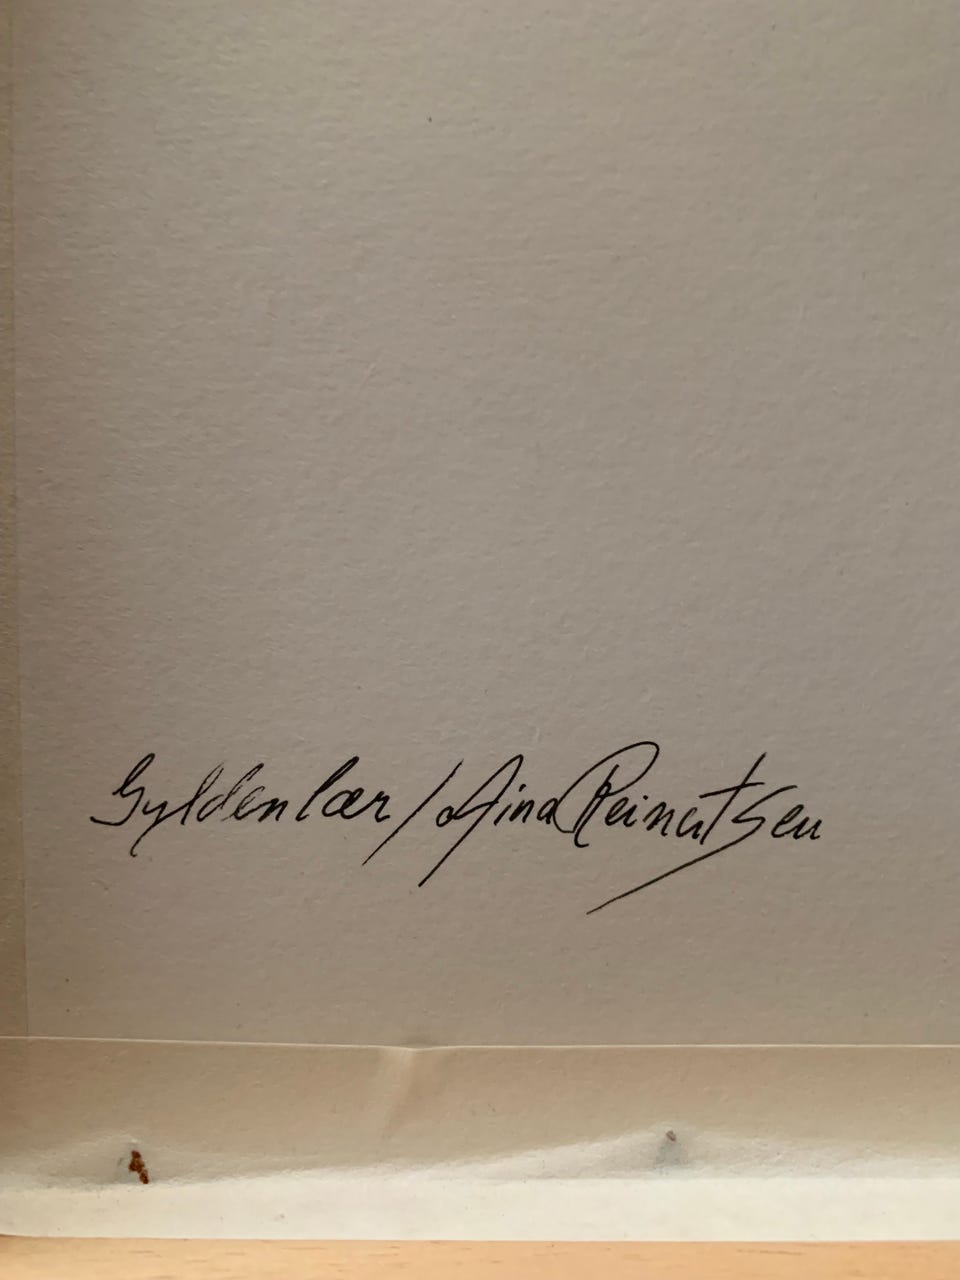 Gyldenlær / Aina Reinertsen